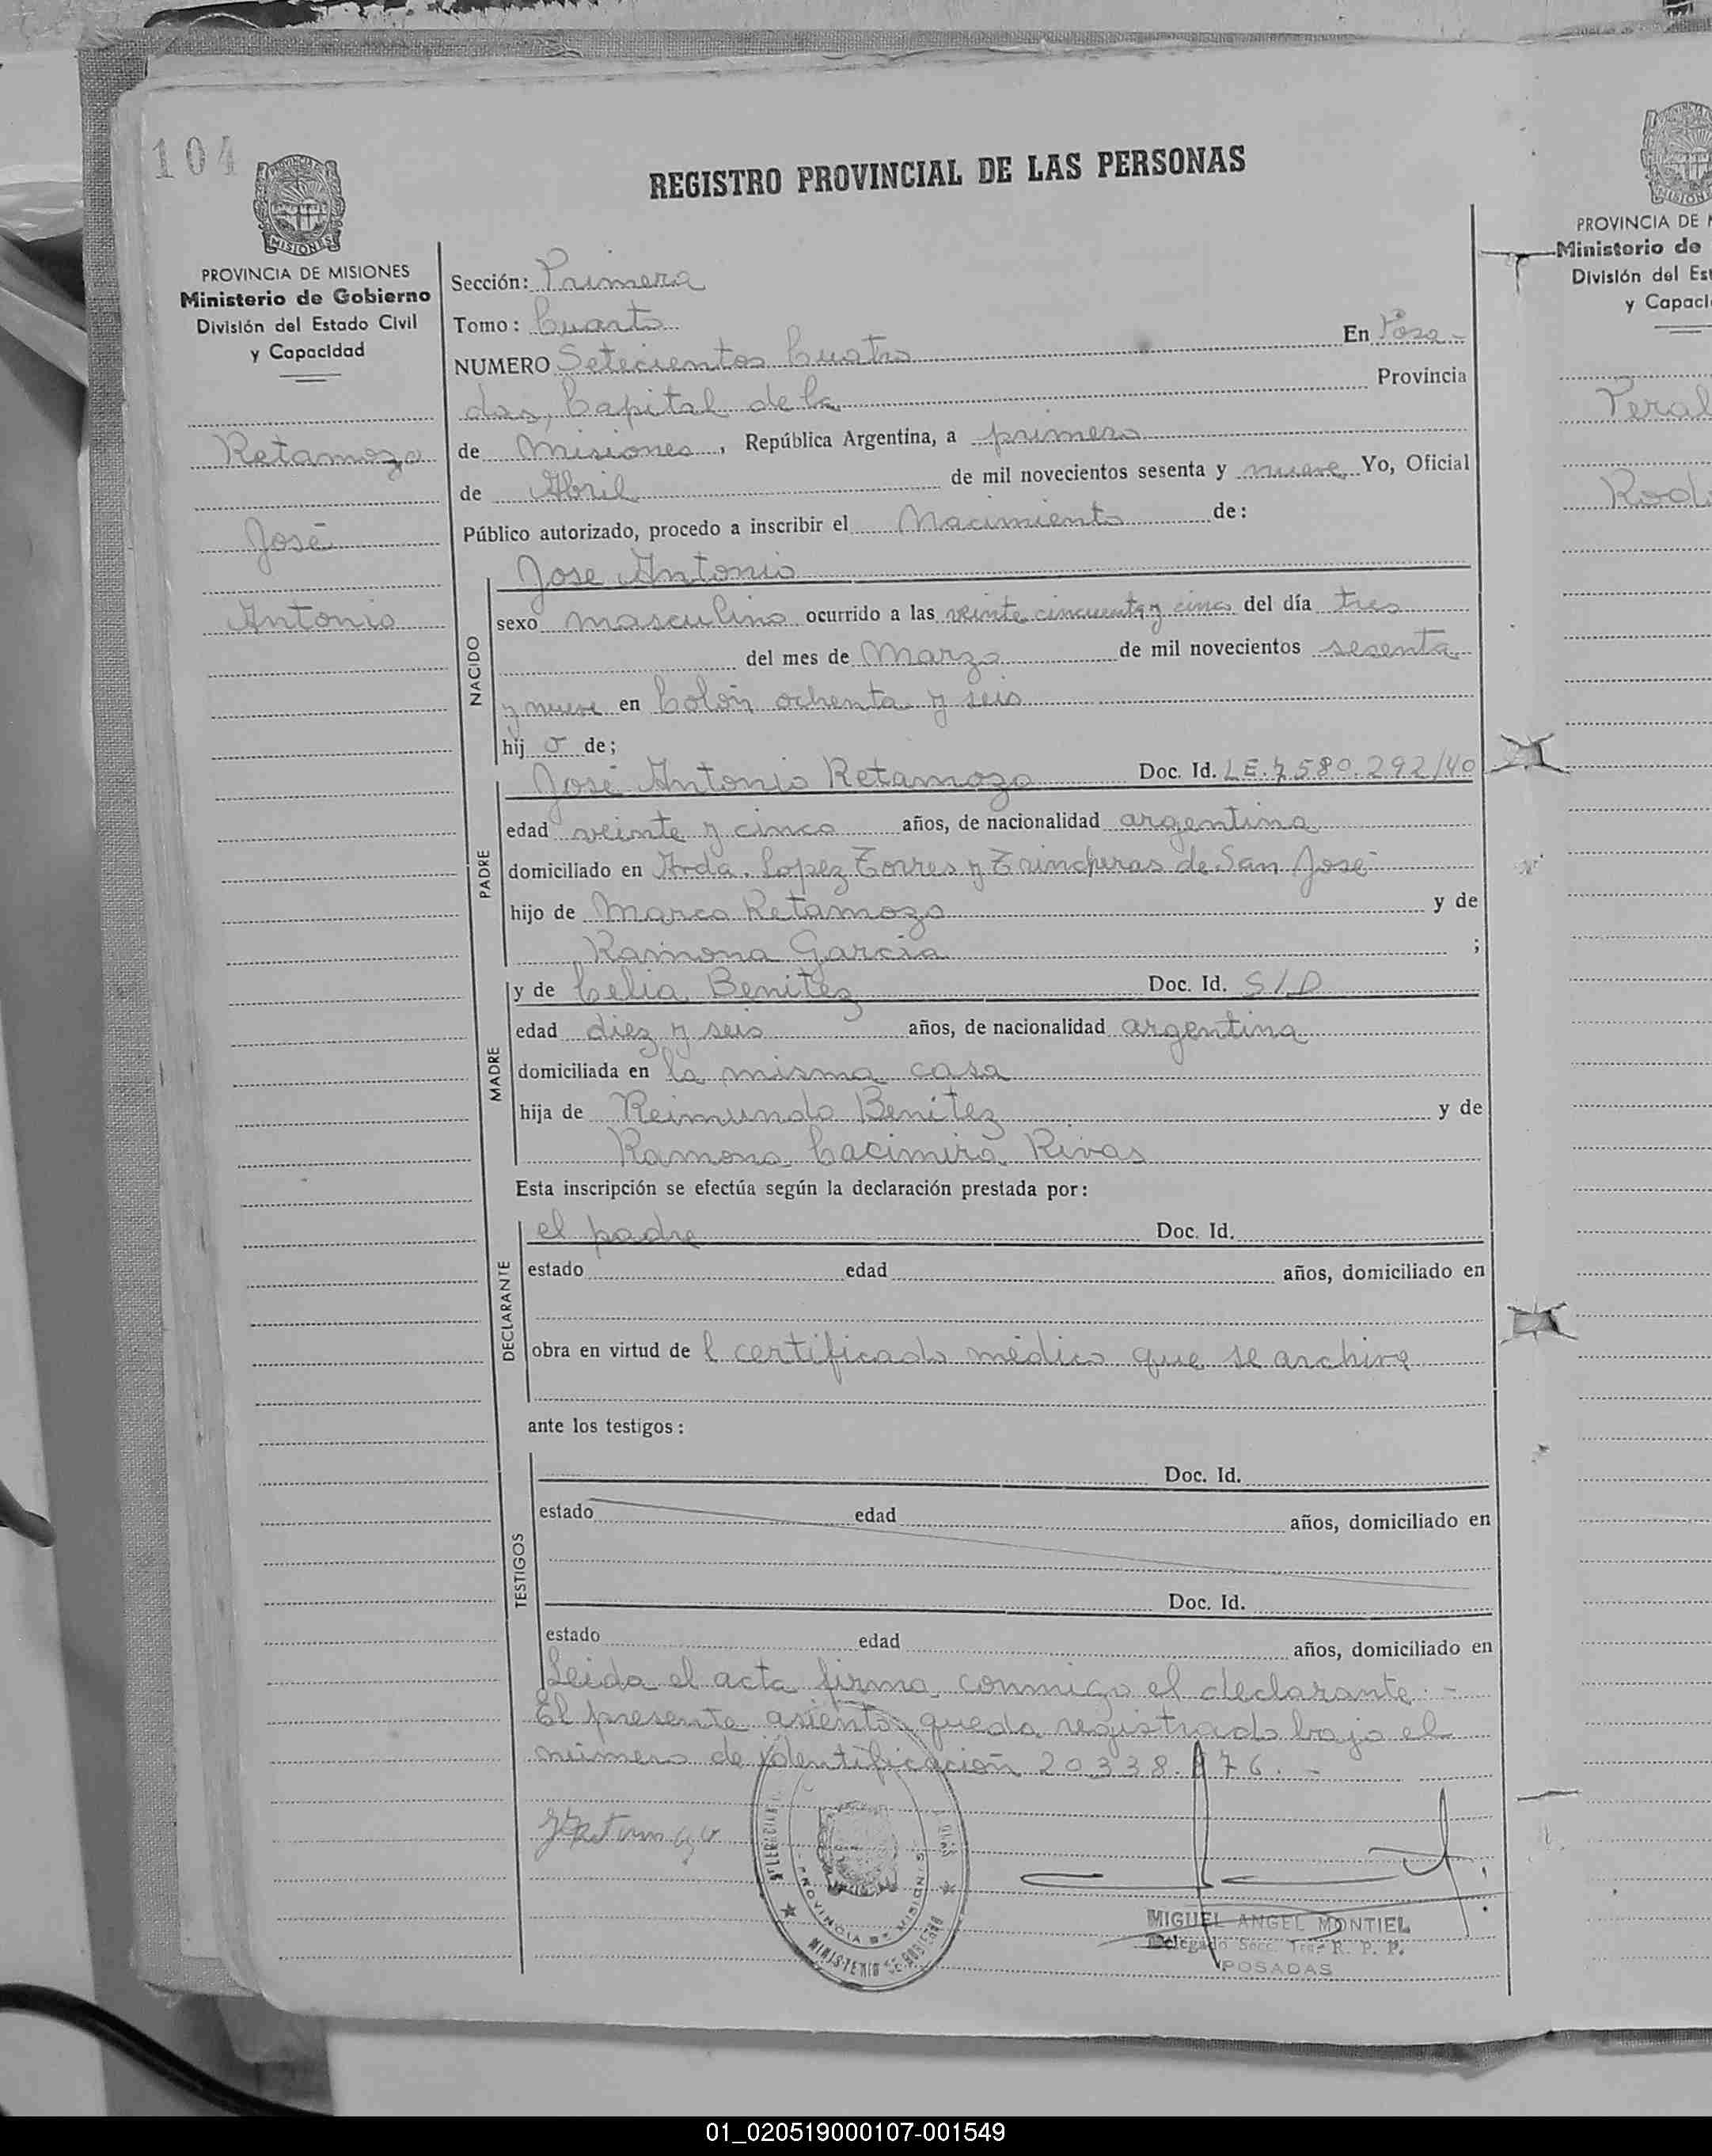 104
REGISTRO PROVINCIAL DE LAS PERSONAS
MISIONES
PROVINCIA DE MISIONES
Ministerio de Gobierno
División del Estado Civil
y Capacidad
Retamozo
José
Antonio
Sección: Primera
Tomo: Cuarto
NUMERO Setecientos Cuatro En Posa-
das, Capital de la Provincia
de Misiones, República Argentina, a primero
de Abril de mil novecientos sesenta y nueve Yo, Oficial
Público autorizado, procedo a inscribir el Nacimiento de:
NACIDO
Jose Antonio
sexo masculino ocurrido a las veinte cincuenta y cinco del día tres
del mes de Marzo de mil novecientos sesenta
y nueve en Colón ochenta y seis
hij o de;
PADRE
José Antonio Retamozo Doc. Id. LE.7580.292/40
edad veinte y cinco años, de nacionalidad argentina
domiciliado en Avda. Lopez Torres y Trincheras de San José
hijo de Marco Retamozo y de
Ramona Garcia ;
MADRE
y de Celia Benitez Doc. Id. S/D
edad diez y seis años, de nacionalidad argentina
domiciliada en la misma casa
hija de Reimundo Benitez y de
Ramona Cacimira Rivas
Esta inscripción se efectúa según la declaración prestada por:
DECLARANTE
el padre Doc. Id.
estado edad años, domiciliado en
obra en virtud de l certificado médico que se archiva
ante los testigos:
TESTIGOS
Doc. Id.
estado edad años, domiciliado en
Doc. Id.
estado edad años, domiciliado en
Leida el acta firma conmigo el declarante.-
El presente asiento queda registrado bajo el
número de identificación 20.338.
PROVINCIA DE MISIONES
MINISTERIO DE GOBIERNO
MIGUEL ANGEL MONTIEL
Delegado Secc. R. P. P.
POSADAS
PROVINCIA DE
Ministerio de
División del Es
y Capaci
Peral
Rod
01_020519000107-001549